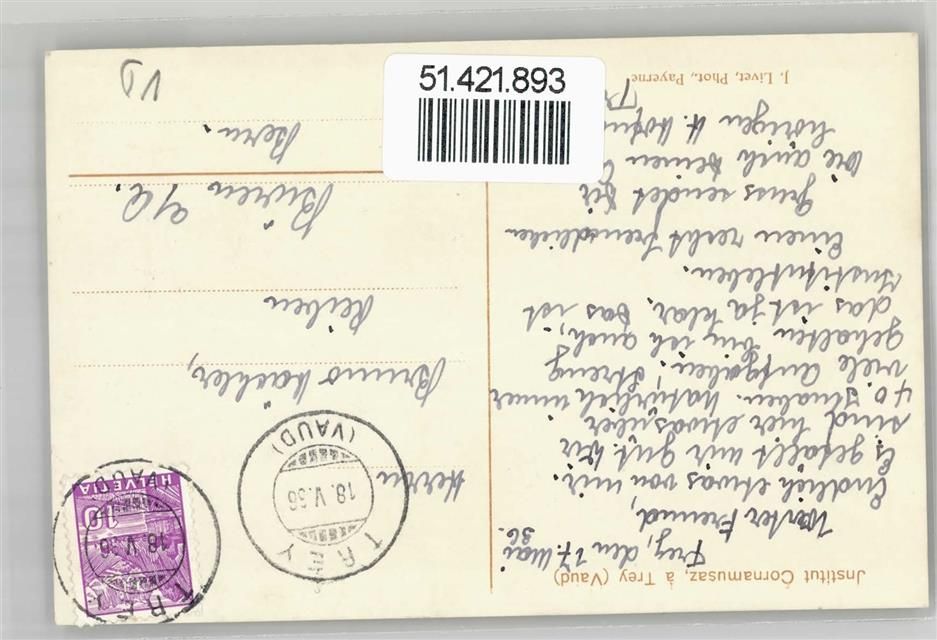 Institut Cornamusaz, à Trey (Vaud)
Trey, den 17. Mai
36.
Werter Freund,
Endlich etwas von mir.
Es gefällt mir gut. Wir
sind hier etwas über
40 Knaben. Natürlich immer
viele Aufgaben. Streng
gehalten bin ich auch,
das ist ja klar. Das ist
Institutleben.
Einen recht freundlichen
Gruss sendet Dir
wie auch deinen
hörigen H.
J. Livet, Phot., Payerne
TREY
18.V.36
(VAUD)
TREY
18.V.36
(VAUD)
HELVETIA
10
Herrn
Bruno Kachler,
Reiben
Büren a/A.
Bern.
VD
51.421.893